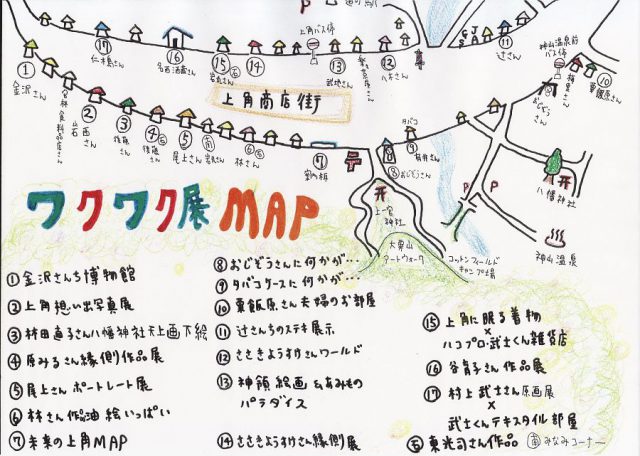 上角バス停
神山温泉前
バス停
JA
GS
⑰
⑯
⑮
⑭
⑬
⑫
⑪
辻さん
①
金沢さん
②
③
④
⑤
尾上さん
⑥
林さん
⑦
タバコ
⑧
おじぞうさん
⑨
⑩
粟飯原さん
上角商店街
P
P
上一宮
神社
八幡神社
大粟山
アートウォーク
コットンフィールド
キャンプ場
神山温泉
ワクワク展MAP
①金沢さんち博物館
②上角想い出写真展
③村田直子さん八幡神社天上画下絵
④原みるさん縁側作品展
⑤尾上さんポートレート展
⑥林さん作品油絵いっぱい
⑦未来の上角MAP
⑧おじぞうさんに何かが…
⑨タバコケースに何かが…
⑩粟飯原さん夫婦のお部屋
⑪辻さんちのステキ展示
⑫ささきようすけさんワールド
⑬神領絵画&あみもの
パラダイス
⑭ささきようすけさん縁側展
⑮上角に眠る着物
×
ハコプロ・武士くん雑貨店
⑯谷育子さん作品展
⑰村上武士さん原画展
×
武士くんテキスタイル部屋
東光司さん作品 南みなみコーナー